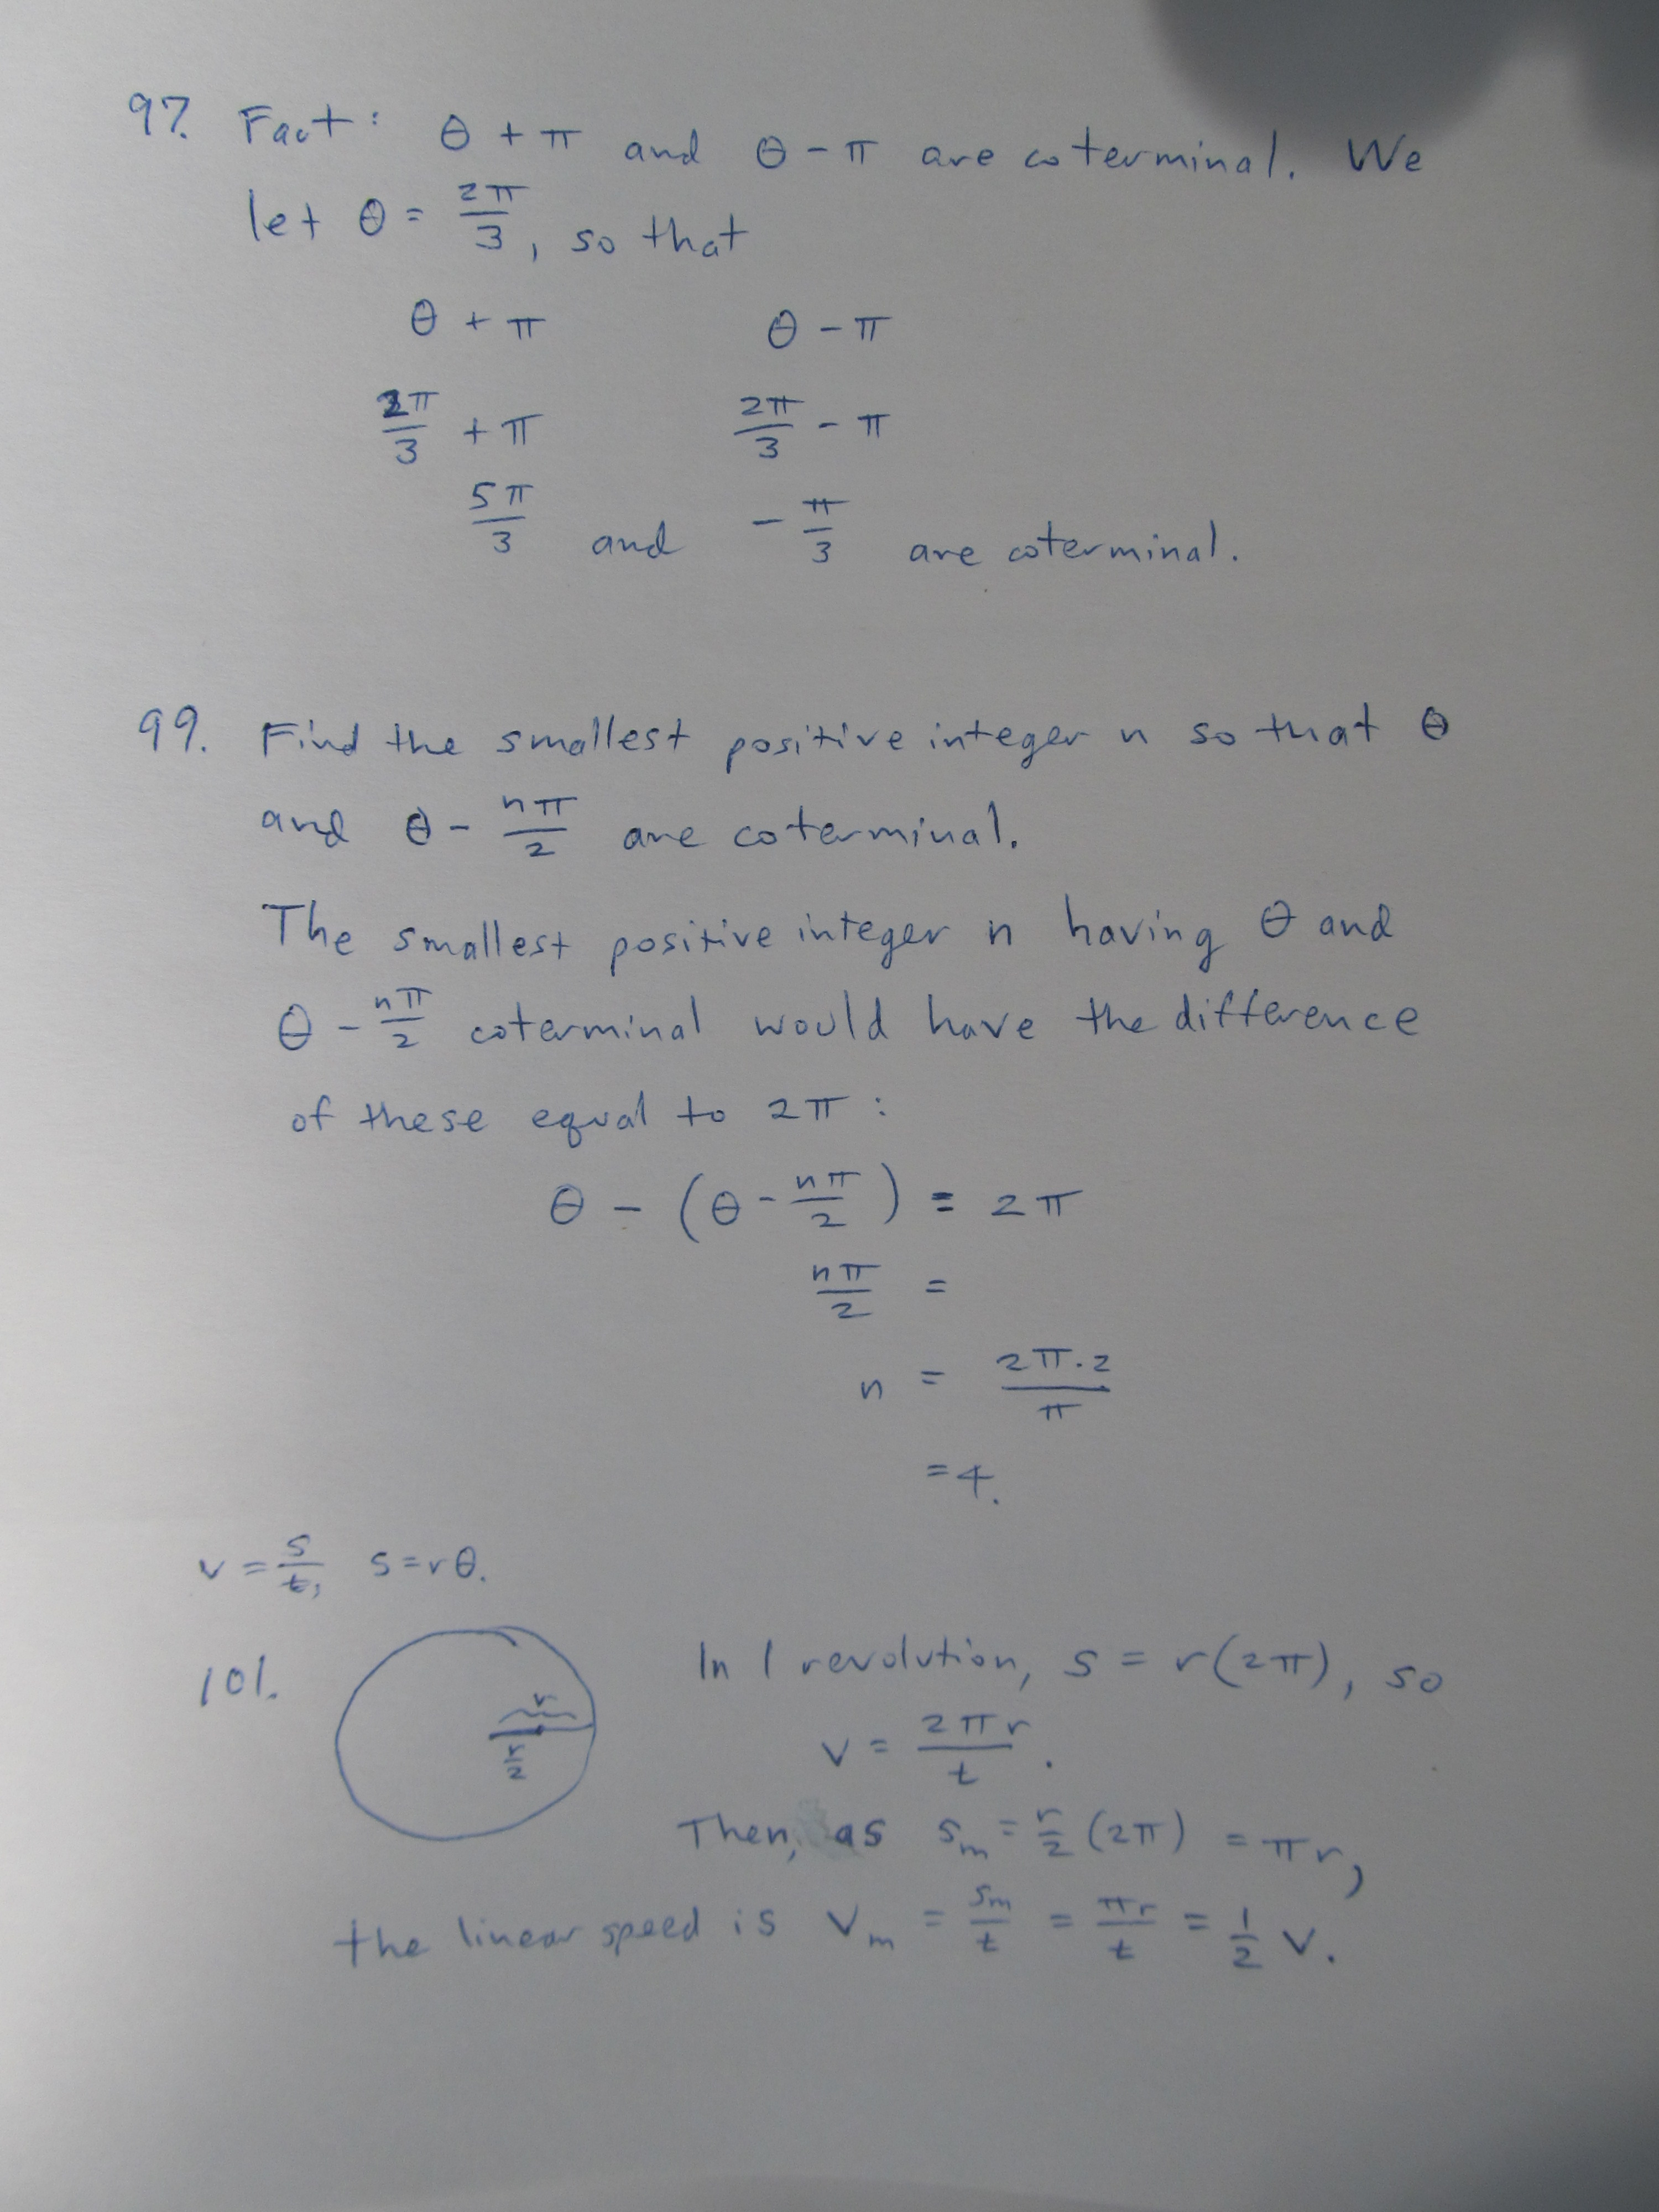 97. Fact: θ + π and θ - π are coterminal. We
let θ = 2π/3, so that
θ + π    θ - π
2π/3 + π    2π/3 - π
5π/3 and -π/3 are coterminal.
99. Find the smallest positive integer n so that θ
and θ - nπ/2 are coterminal.
The smallest positive integer n having θ and
θ - nπ/2 coterminal would have the difference
of these equal to 2π:
θ - (θ - nπ/2) = 2π
nπ/2 =
n = 2π·2/π
= 4.
v = s/t, s = rθ.
101.
r
r/2
In 1 revolution, s = r(2π), so
v = 2πr/t.
Then, as s_m = r/2 (2π) = πr,
the linear speed is v_m = s_m/t = πr/t = 1/2 v.